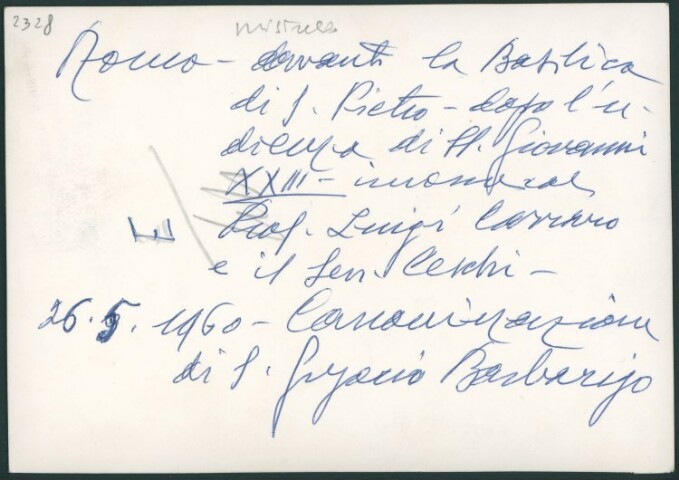 2328
Roma - davanti la Basilica
di S. Pietro - dopo l'u-
dienza di SS. Giovanni
XXIII - insieme al
Prof. Luigi Carraro
e il Sen. Ceschi -
E
26.5.1960 - Canonizzazione
di S. Gregorio Barbarigo